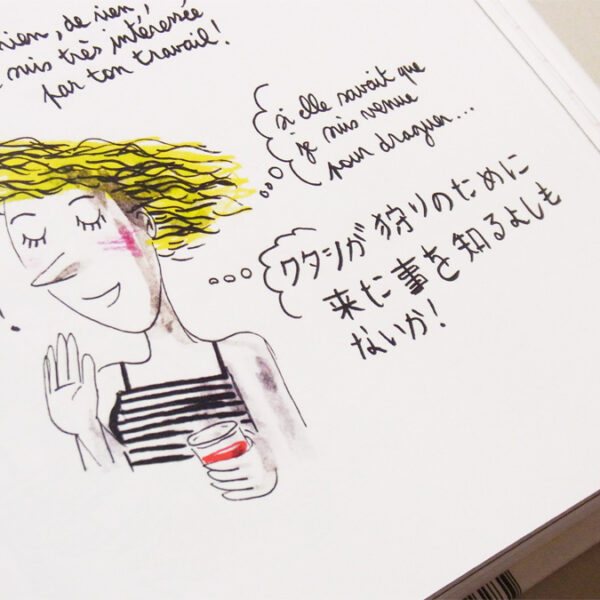 rien, de rien,
suis très intéressée
par ton travail!
si elle savait que
je suis venue
pour draguer...
ワタシが狩りのために
来た事を知るよしも
ないか!
!